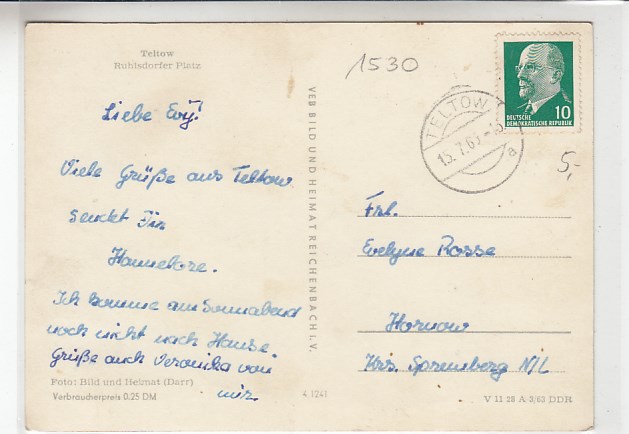 Teltow
Ruhlsdorfer Platz
1530
Liebe Evy!
Viele Grüße aus Teltow
sendet Dir
Hannelore.
Ich komme am Sonnabend
noch nicht nach Hause.
Grüße auch Veronika von
mir.
Foto: Bild und Heimat (Darr)
Verbraucherpreis 0,25 DM
4 1241
VEB BILD UND HEIMAT REICHENBACH I. V.
TELTOW
15.7.63
a
10
DEUTSCHE
DEMOKRATISCHE REPUBLIK
5,-
Frl.
Evelyne Rosse
Hornow
Krs. Spremberg N/L
V 11 28 A 3/63 DDR